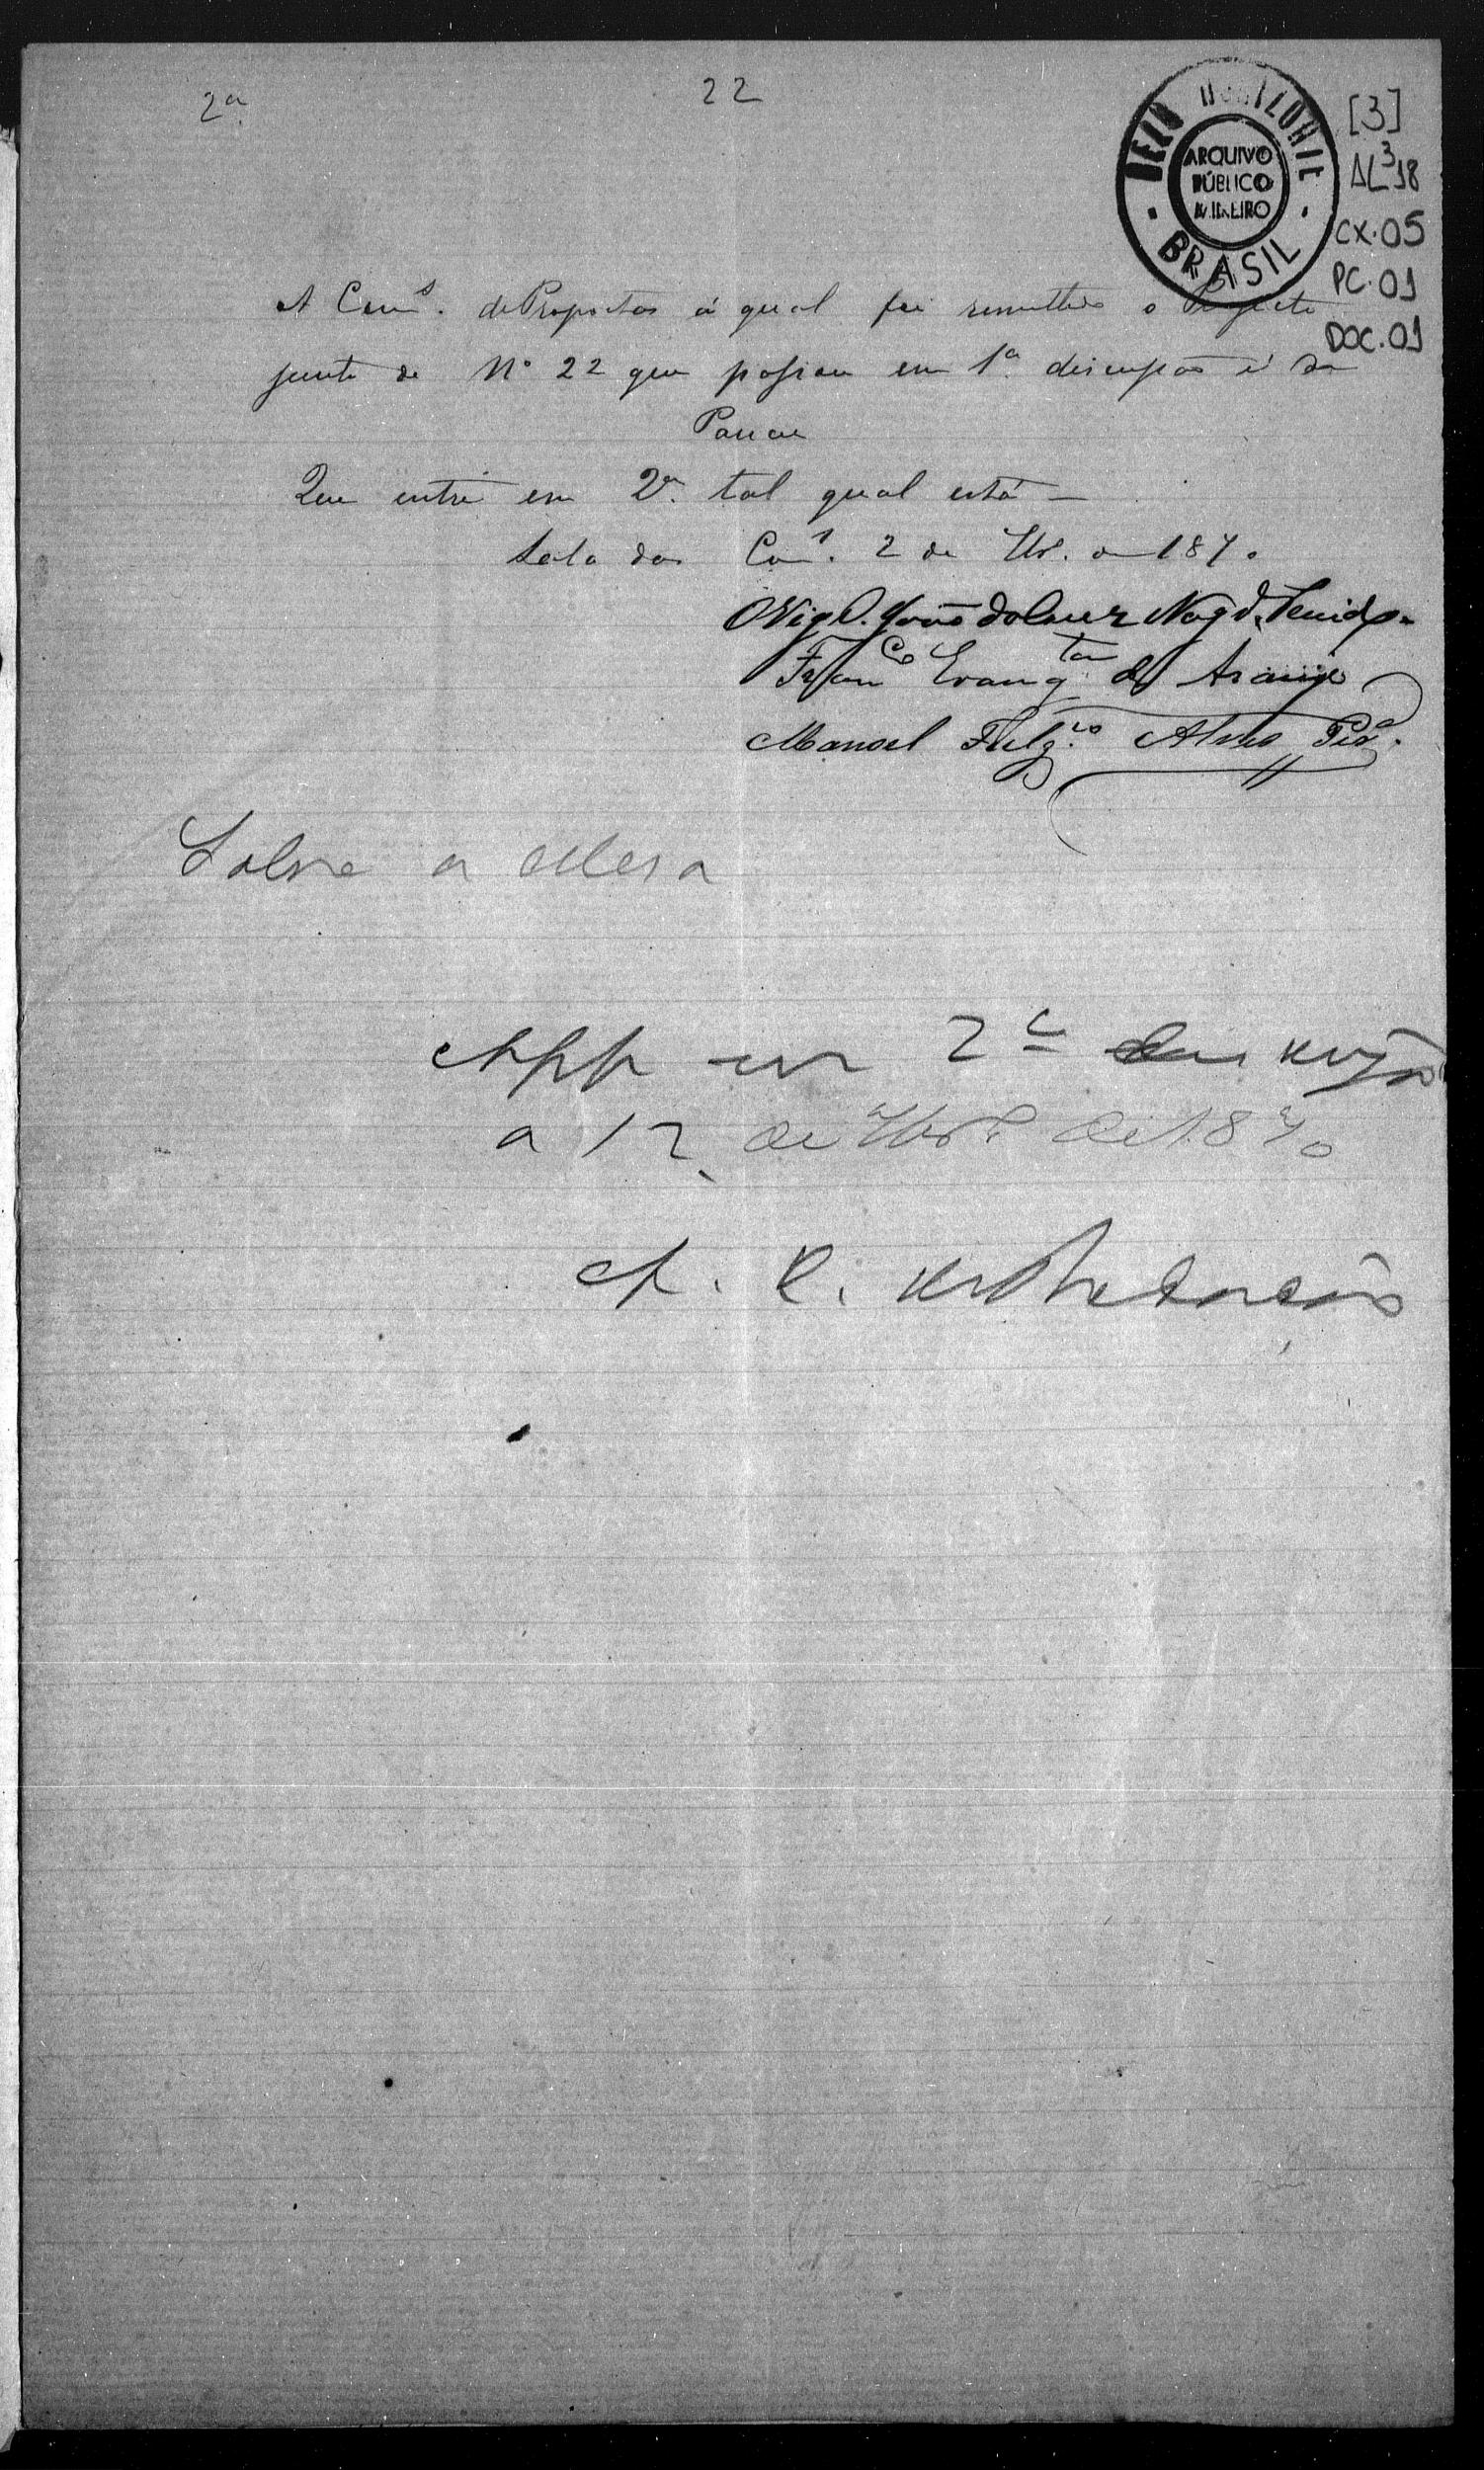 2ª
22
BELO HORIZONTE
ARQUIVO
PÚBLICO
MINEIRO
BRASIL
[3]
AL³18
CX.05
PC.01
DOC.01
A Comˢ. de Propostas á qual foi remettido o Projecto
junto de Nº 22 que passou em 1ª. discussão é de
Parecer
Que entre em 2ª. tal qual está —
Sala das Comˢ. 2 de de 1870
João
Franᶜᵒ Evangᵗᵃ de Araujo
Manoel Fulgᶜⁱᵒ Alves Perª.
Sobre a Mesa
App em 2ª discussão
a 12 de de 1870
A.